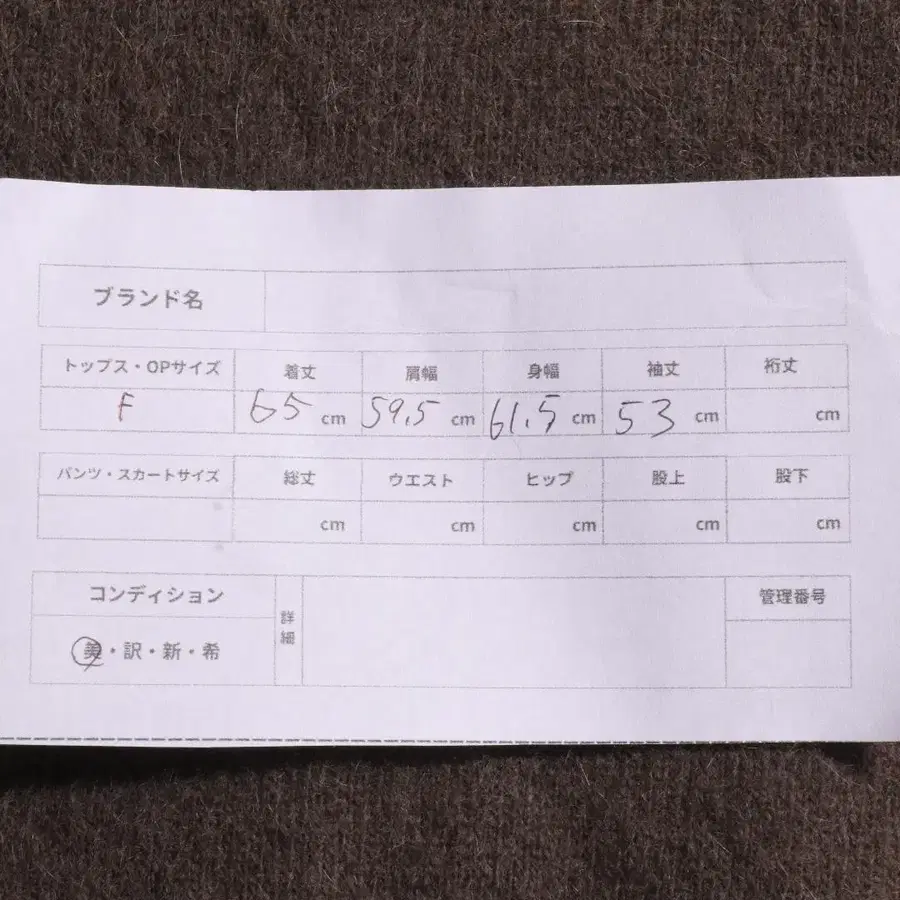 ブランド名
トップス・OPサイズ 着丈 肩幅 身幅 袖丈 裄丈
F 65 cm 59.5 cm 61.5 cm 53 cm cm
パンツ・スカートサイズ 総丈 ウエスト ヒップ 股上 股下
cm cm cm cm cm
コンディション 詳細 管理番号
美・訳・新・希